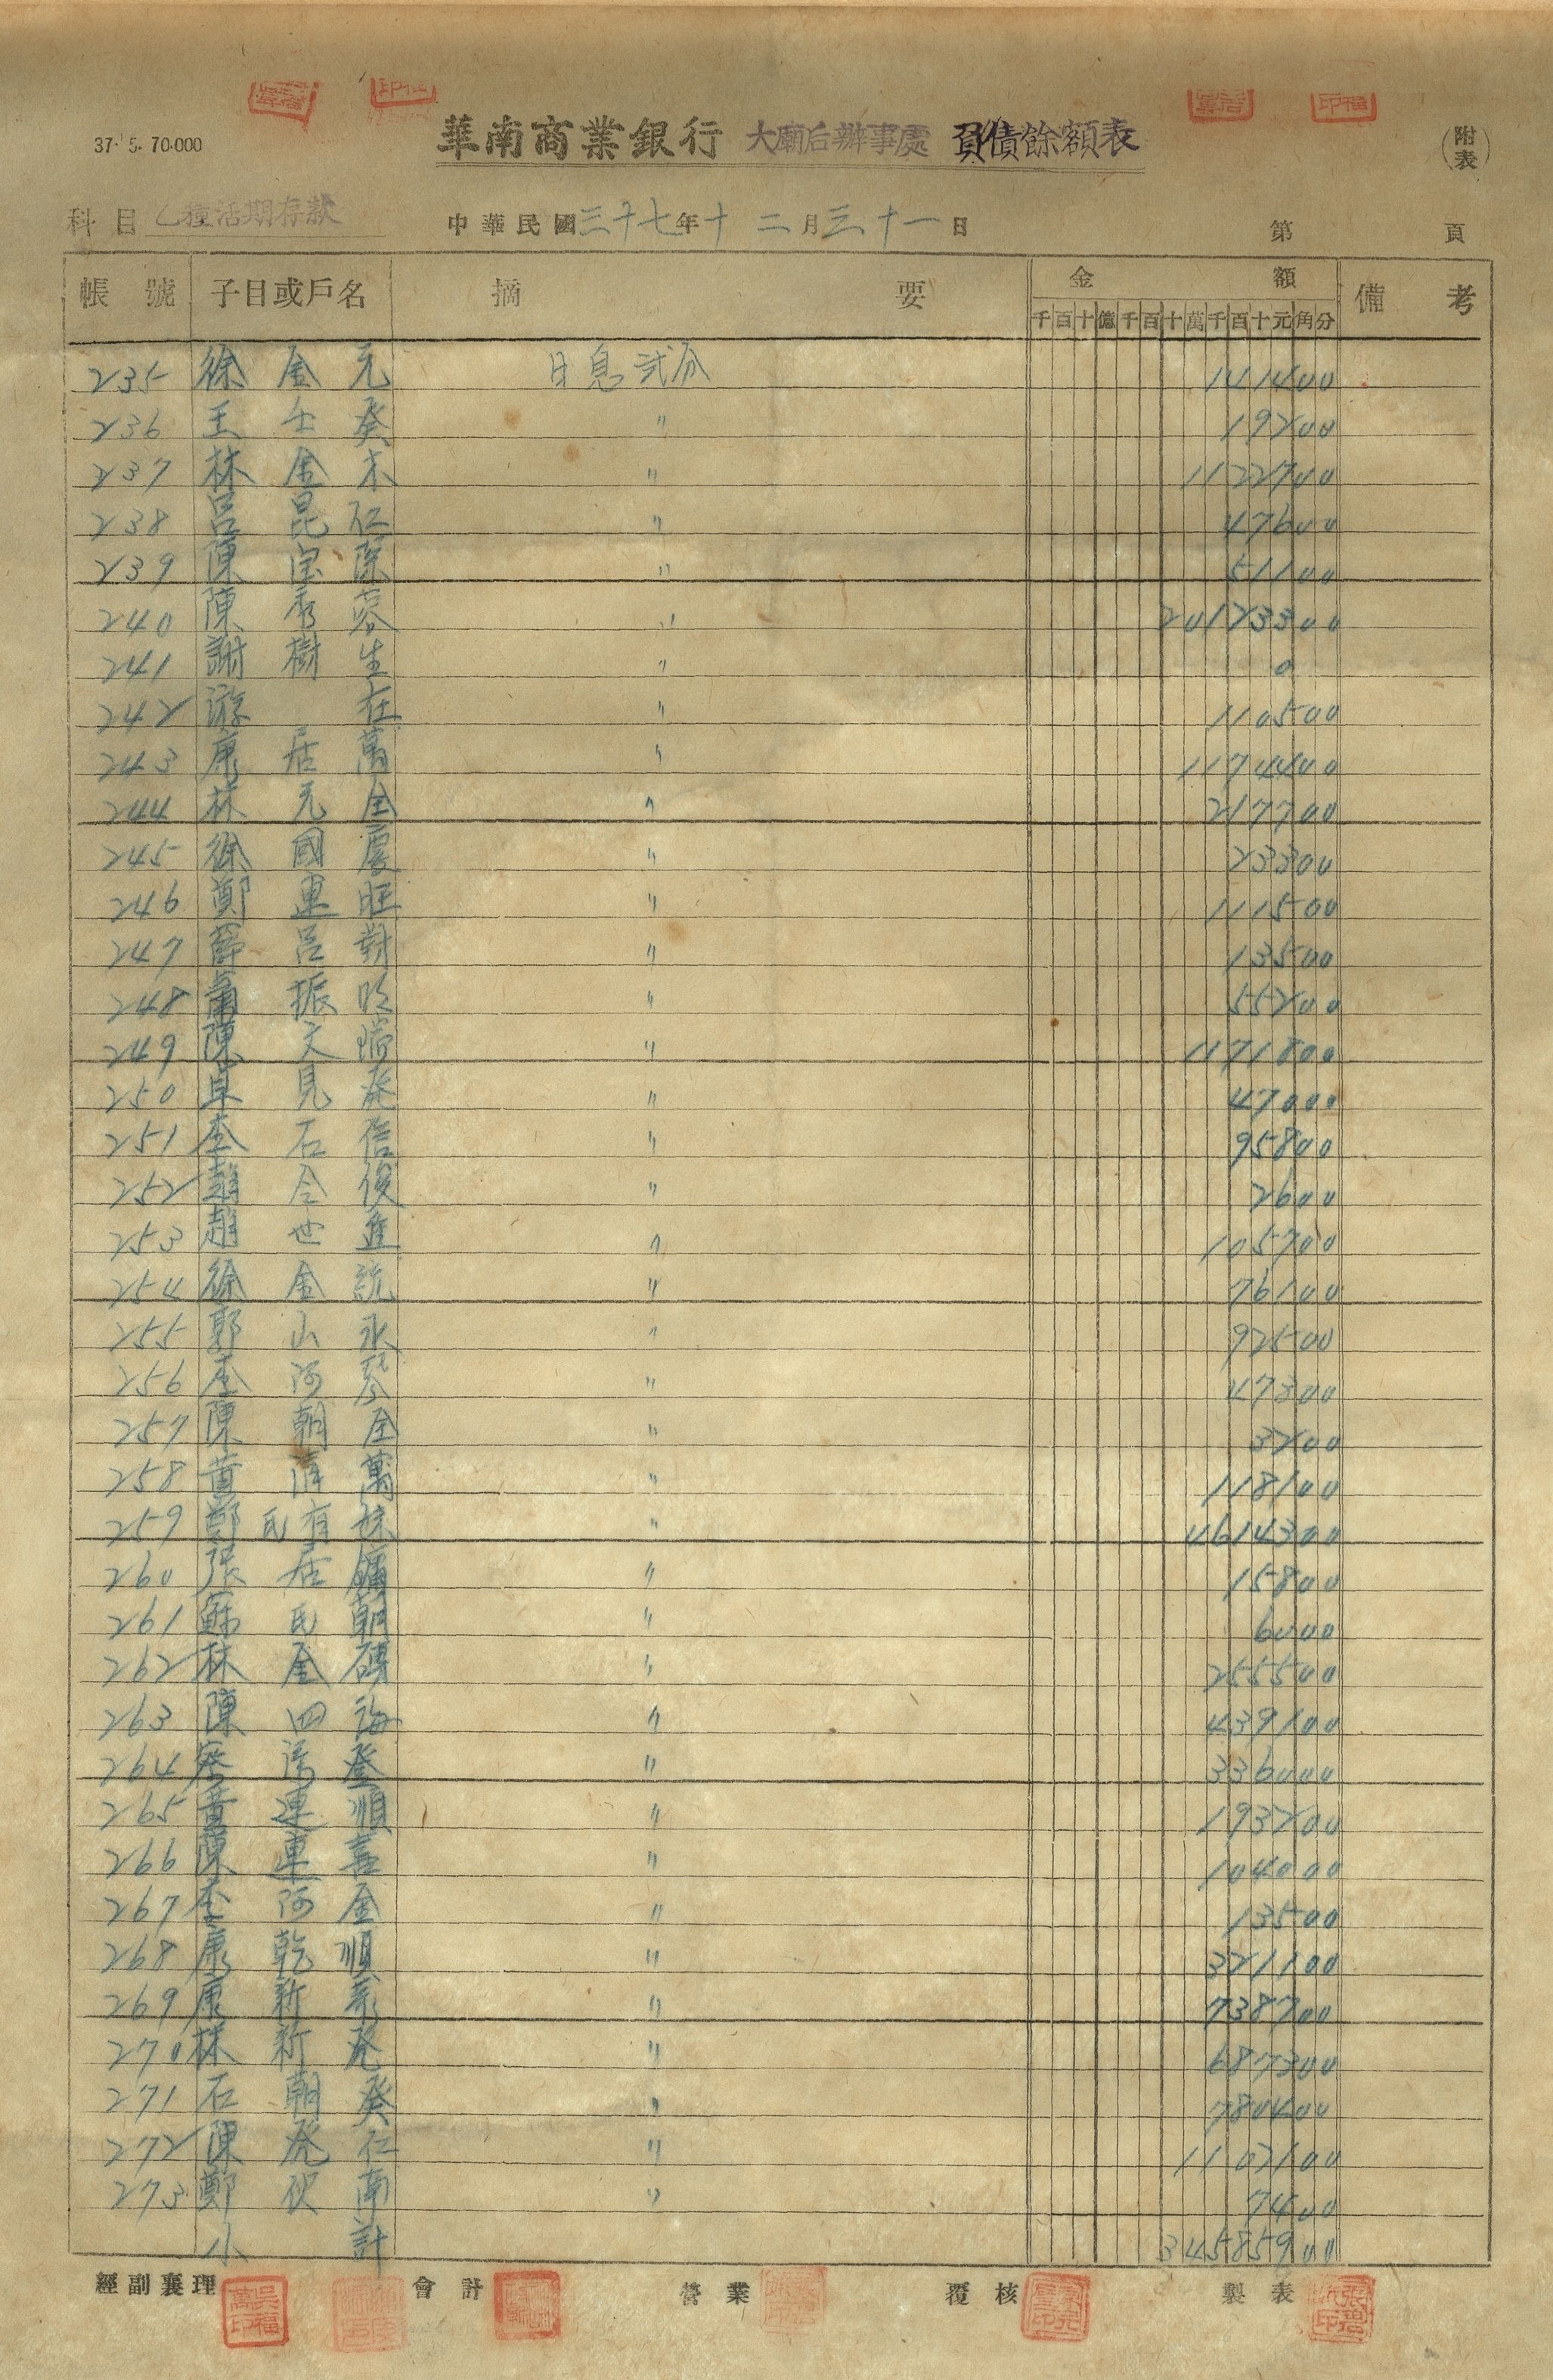 37. 5. 70.000
華南商業銀行 大廟后辦事處 負債餘額表
(附表)
科目 乙種活期存款 中華民國三十七年十二月三十一日 第 頁
帳號 子目或戶名 摘要 金額 備考
千百十億千百十萬千百十元角分
235 徐金元 日息弐分 141400
236 王士癸 〃 19200
237 林金木 〃 1122700
238 呂昆仁 〃 47600
239 陳宝 〃 51100
240 陳秀蓉 〃 20123300
241 謝樹生 〃 0
242 游在 〃 110500
243 康居萬 〃 1174400
244 林元全 〃 217700
245 徐國慶 〃 23300
246 鄭連旺 〃 111500
247 薛呂對 〃 13500
248 蕭振 〃 55200
249 陳天瑞 〃 1171800
250 卓見発 〃 47000
251 李石信 〃 95800
252 趙令俊 〃 2600
253 趙世進 〃 105700
254 徐金 〃 76100
255 郭山永 〃 92500
256 李阿琴 〃 47300
257 陳朝全 〃 3200
258 黄 萬 〃 118100
259 鄭氏有妹 〃 4614300
260 張居鑛 〃 15800
261 蘇氏朝 〃 6000
262 林金磚 〃 255500
263 陳四海 〃 439100
264 登 〃 336000
265 黄連順 〃 193200
266 陳連喜 〃 104000
267 李阿金 〃 13500
268 康乾順 〃 321100
269 康新 〃 738700
270 林新発 〃 687300
271 石朝癸 〃 780400
272 陳発仁 〃 1102100
273 鄭 南 〃 7400
小計 34585900
經副襄理 會計 營業 覆核 製表